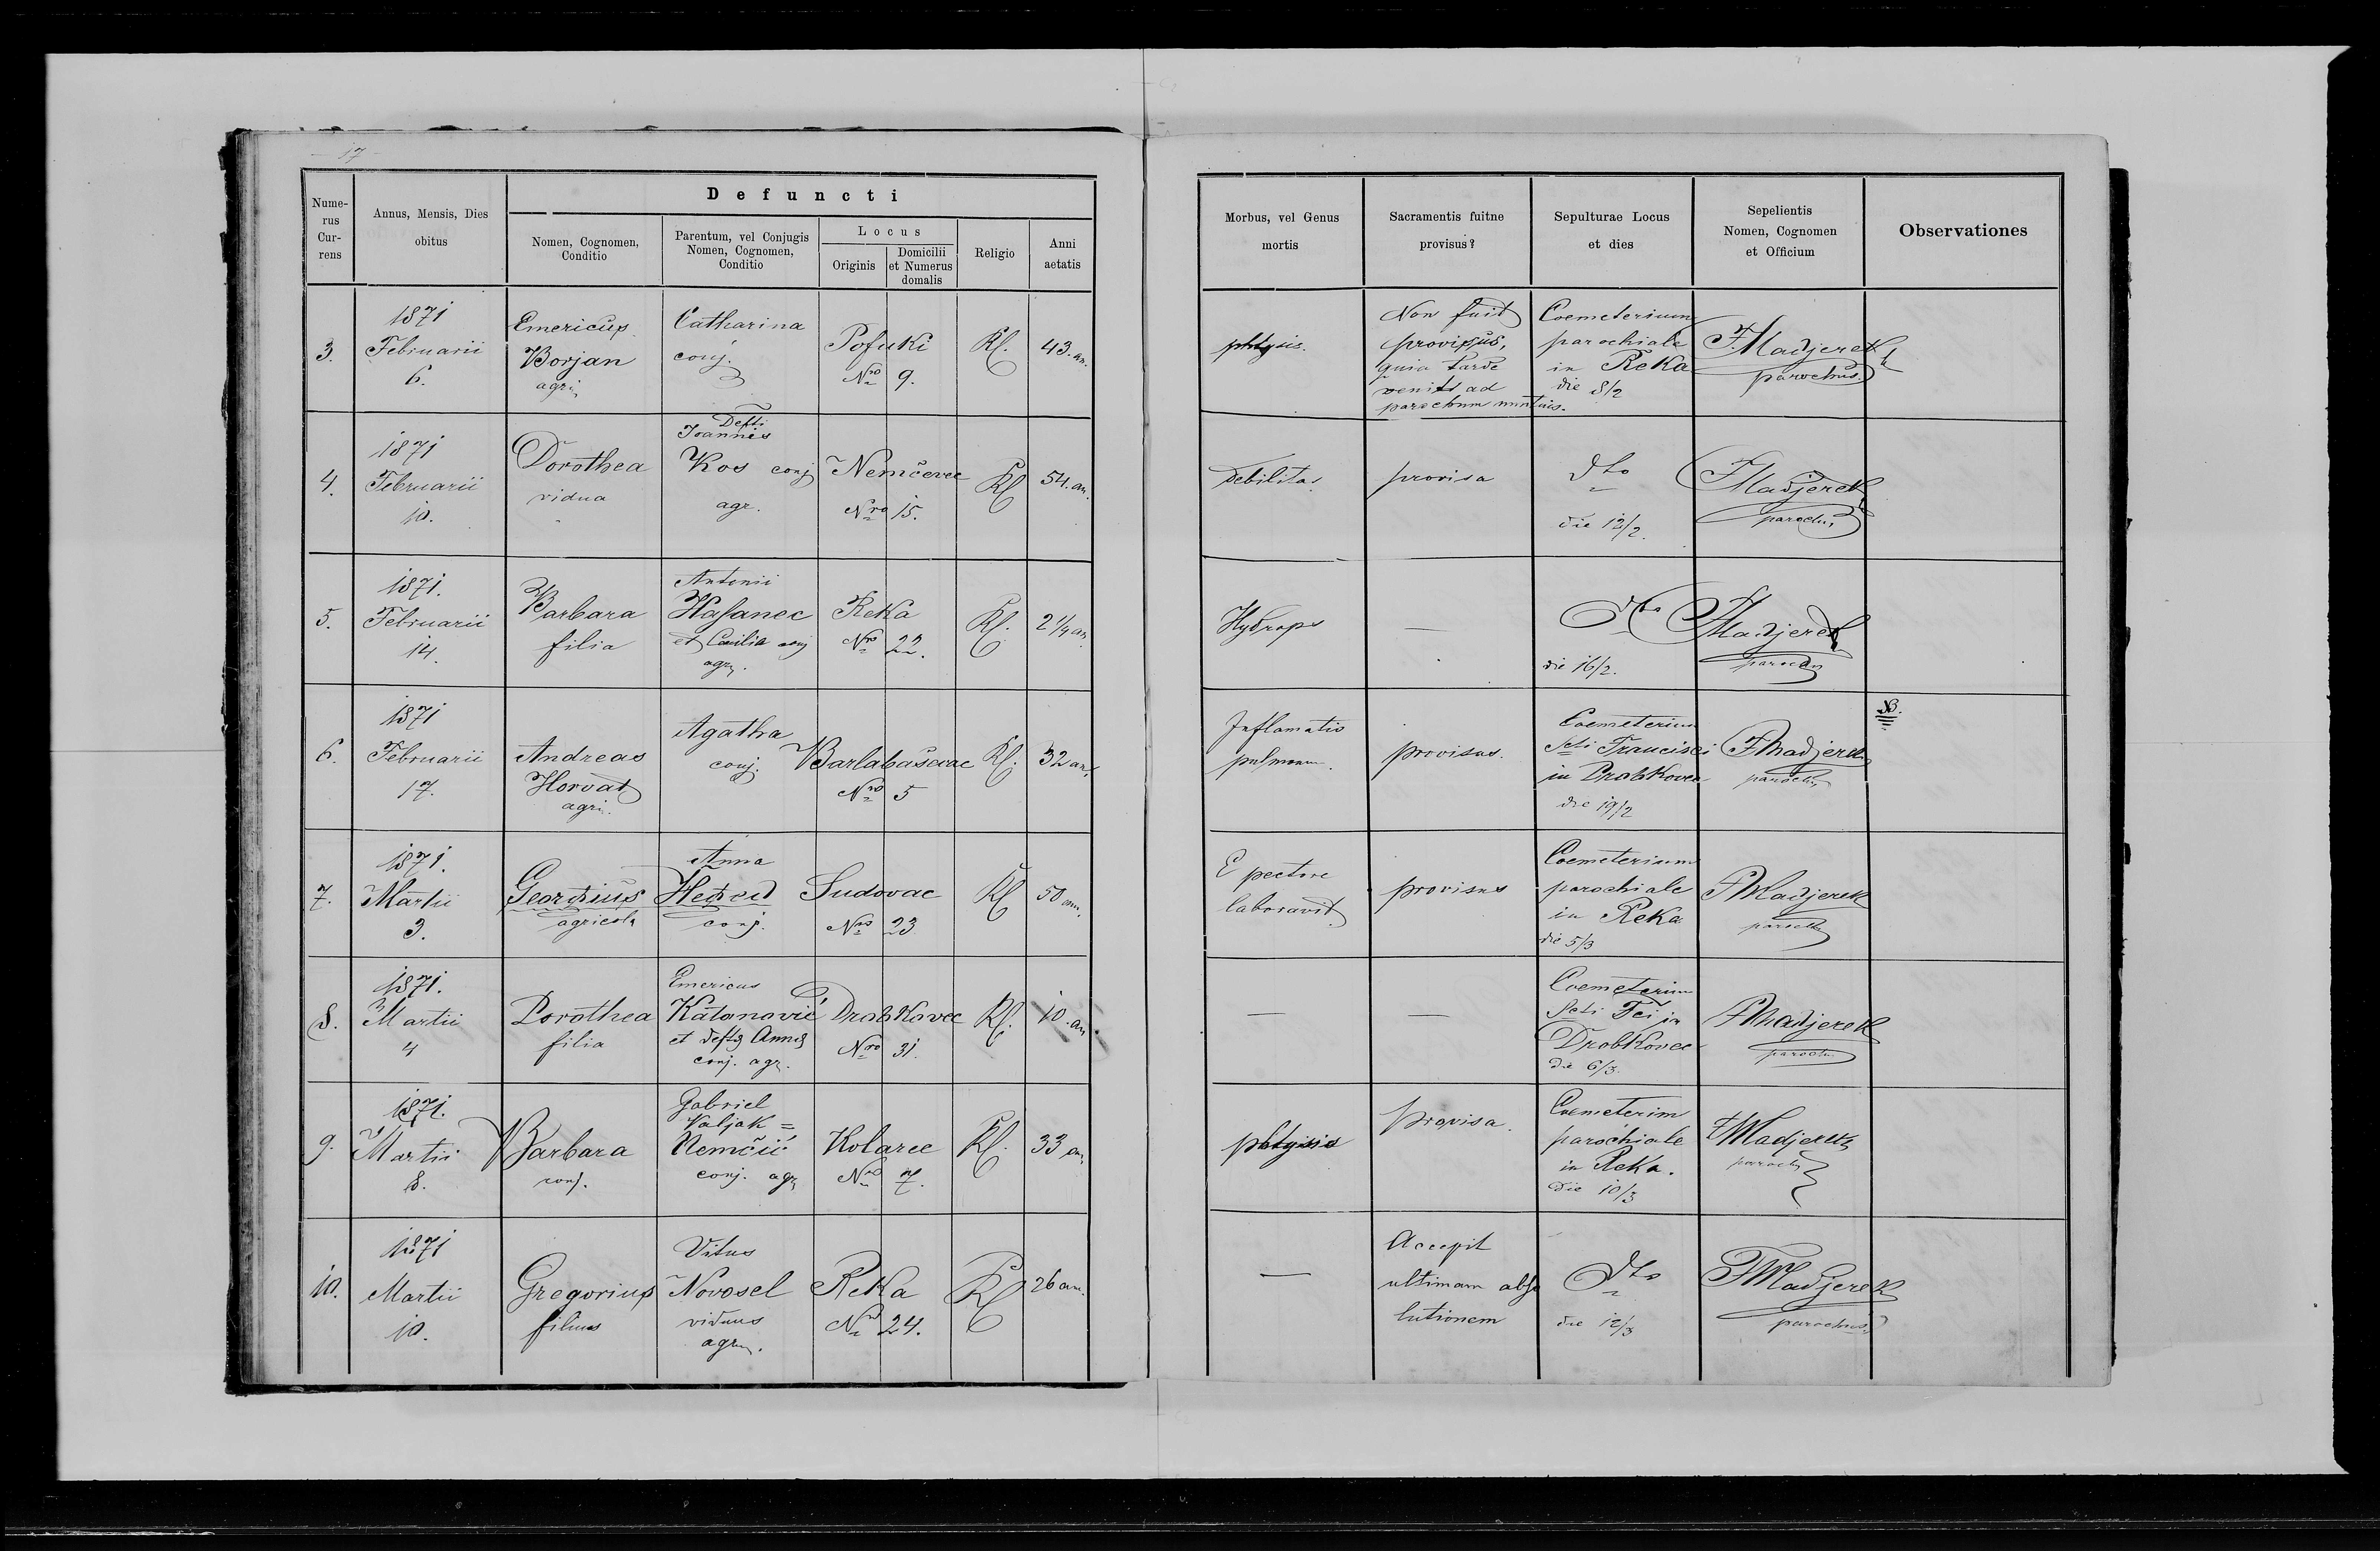 17
Defuncti
Nume-
rus
Cur-
rens
Annus, Mensis, Dies
obitus
Nomen, Cognomen,
Conditio
Parentum, vel Conjugis
Nomen, Cognomen,
Conditio
Locus
Originis
Domicilii
et Numerus
domalis
Religio
Anni
aetatis
Morbus, vel Genus
mortis
Sacramentis fuitne
provisus?
Sepulturae Locus
et dies
Sepelientis
Nomen, Cognomen
et Officium
Observationes
3.
1871
Februarii
6.
Emericus
Borjan
agri
Catharina
conj.
Pofuki
Nro 9.
Rl.
43. an.
phtysis.
Non fuit
provisus,
quia tarde
venit ad
parochum nuntius.
Coemeterium
parochiale
in Reka
die 8/2
F Madjerek
parochus.
4.
1871
Februarii
10.
Dorothea
vidua
Defti
Joannes
Kos conj
agr.
Nemčevec
Nro 15.
Rl
54. an.
Debilitas
provisa
dto
die 12/2.
F Madjerek
parochus
5.
1871.
Februarii
14.
Barbara
filia
Antonii
Hasanec
et Cecilia conj
agr.
Reka
Nro 22.
Rl.
2 1/4 an
Hydrops
—
dto
die 16/2.
F Madjerek
parochus
6.
1871
Februarii
17.
Andreas
Horvat
agri.
Agatha
conj.
Barlabaševac
Nro 5
Rl.
32 an,
Inflamatio
pulmonum.
provisus.
Coemeterium
Scti Francisci
in Drobkovec
die 19/2
F Madjerek
parochus
NB.
7.
1871.
Martii
3.
Georgius
agricola
Anna
conj.
Sudovac
Nro 23
Rl
50 ann.
E pectore
laboravit
provisus
Coemeterium
parochiale
in Reka
die 5/3
F Madjerek
parochus
8.
1871.
Martii
4
Dorothea
filia
Emericus
Katanović
et deftæ Annæ
conj. agr.
Drobkovec
Nro 31.
Rl.
10. an
—
—
Coemeterium
Scti Fci in
Drobkovec
die 6/3.
F Madjerek
parochus
9.
1871.
Martii
8.
Barbara
conj.
Gabriel
Valjak =
Nemčić
conj. agr
Kolarec
Nro 7.
Rl.
33 an,
phtysis
provisa.
Coemeterim
parochiale
in Reka.
die 10/3
F Madjerek
paroch
10.
1871
Martii
10.
Gregorius
filius
Vitus
Novosel
viduus
agr.
Reka
Nro 24.
Rl
26 an.
—
Accepit
ultimam abso
lutionem
dto
die 12/3
F Madjerek
parochus